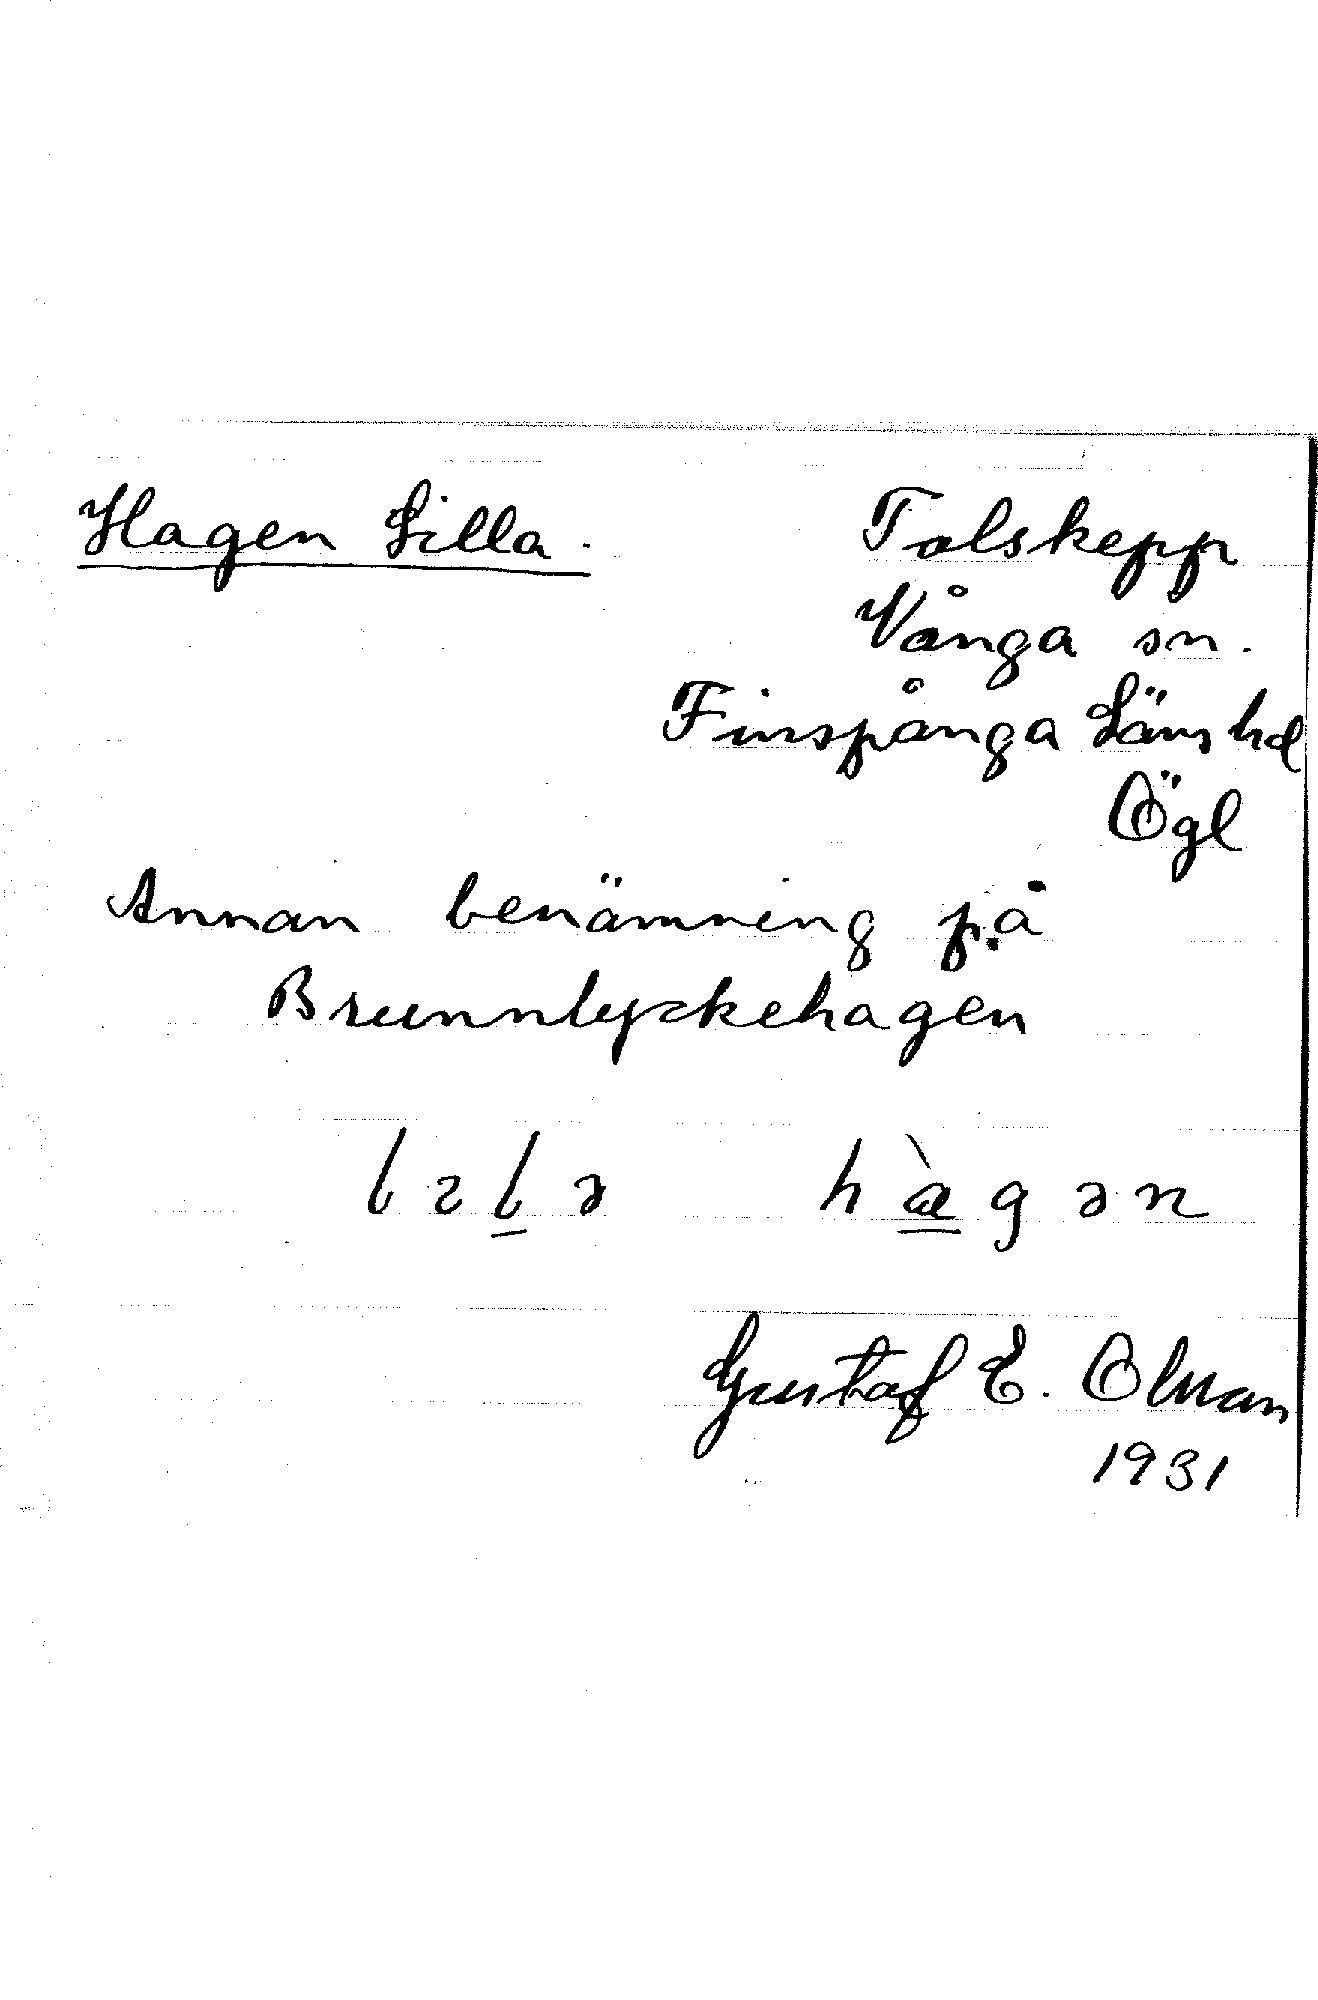 Hagen Lilla. Tolskepp
Vånga sn.
Finspånga Läns hd
Ögl
Annan benämning på
Brunnlyckehagen
lɩlə hàgən
Gustaf E. Olman
1931